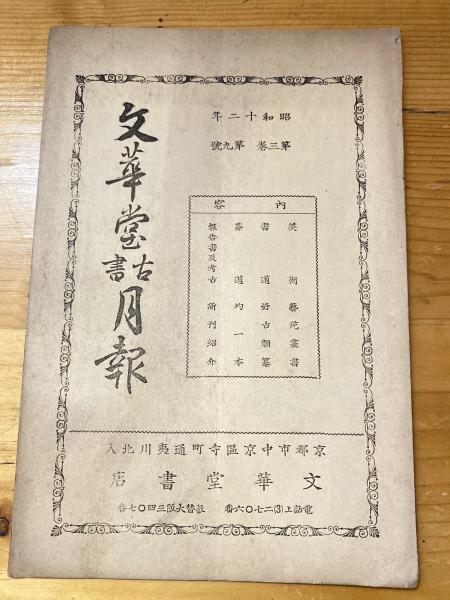 昭和十二年
第三卷 第九號
內容
美術 藝苑叢書
書道 好古類纂
茶道 均一本
報告書及考古 新刊紹介
文華堂古書月報
京都市中京區寺町通夷川北入
文華堂書店
電話上(3)二七〇六番 振替大阪三四〇七番